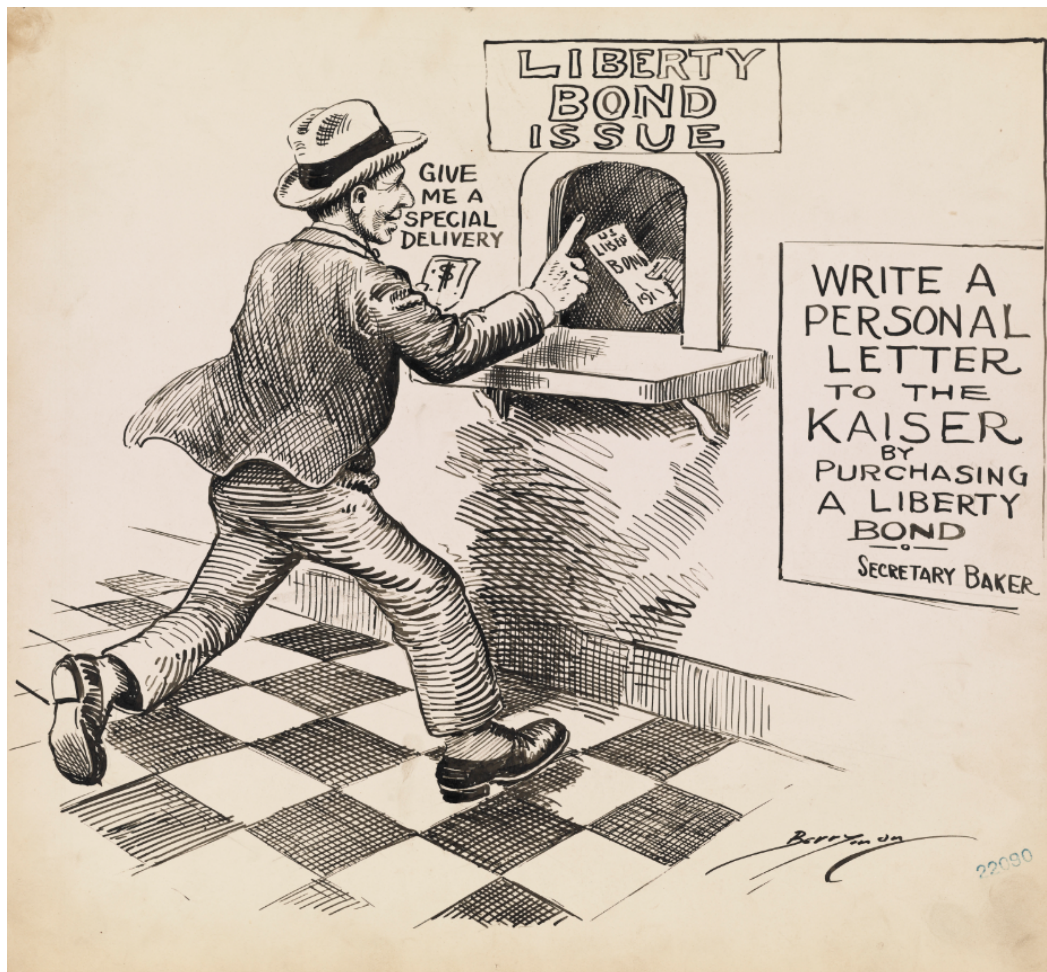 LIBERTY
BOND
ISSUE
GIVE
ME A
SPECIAL
DELIVERY
$
U.S.
LIBERTY
BOND
191
WRITE A
PERSONAL
LETTER
TO THE
KAISER
BY
PURCHASING
A LIBERTY
BOND
SECRETARY BAKER
Berryman
22090